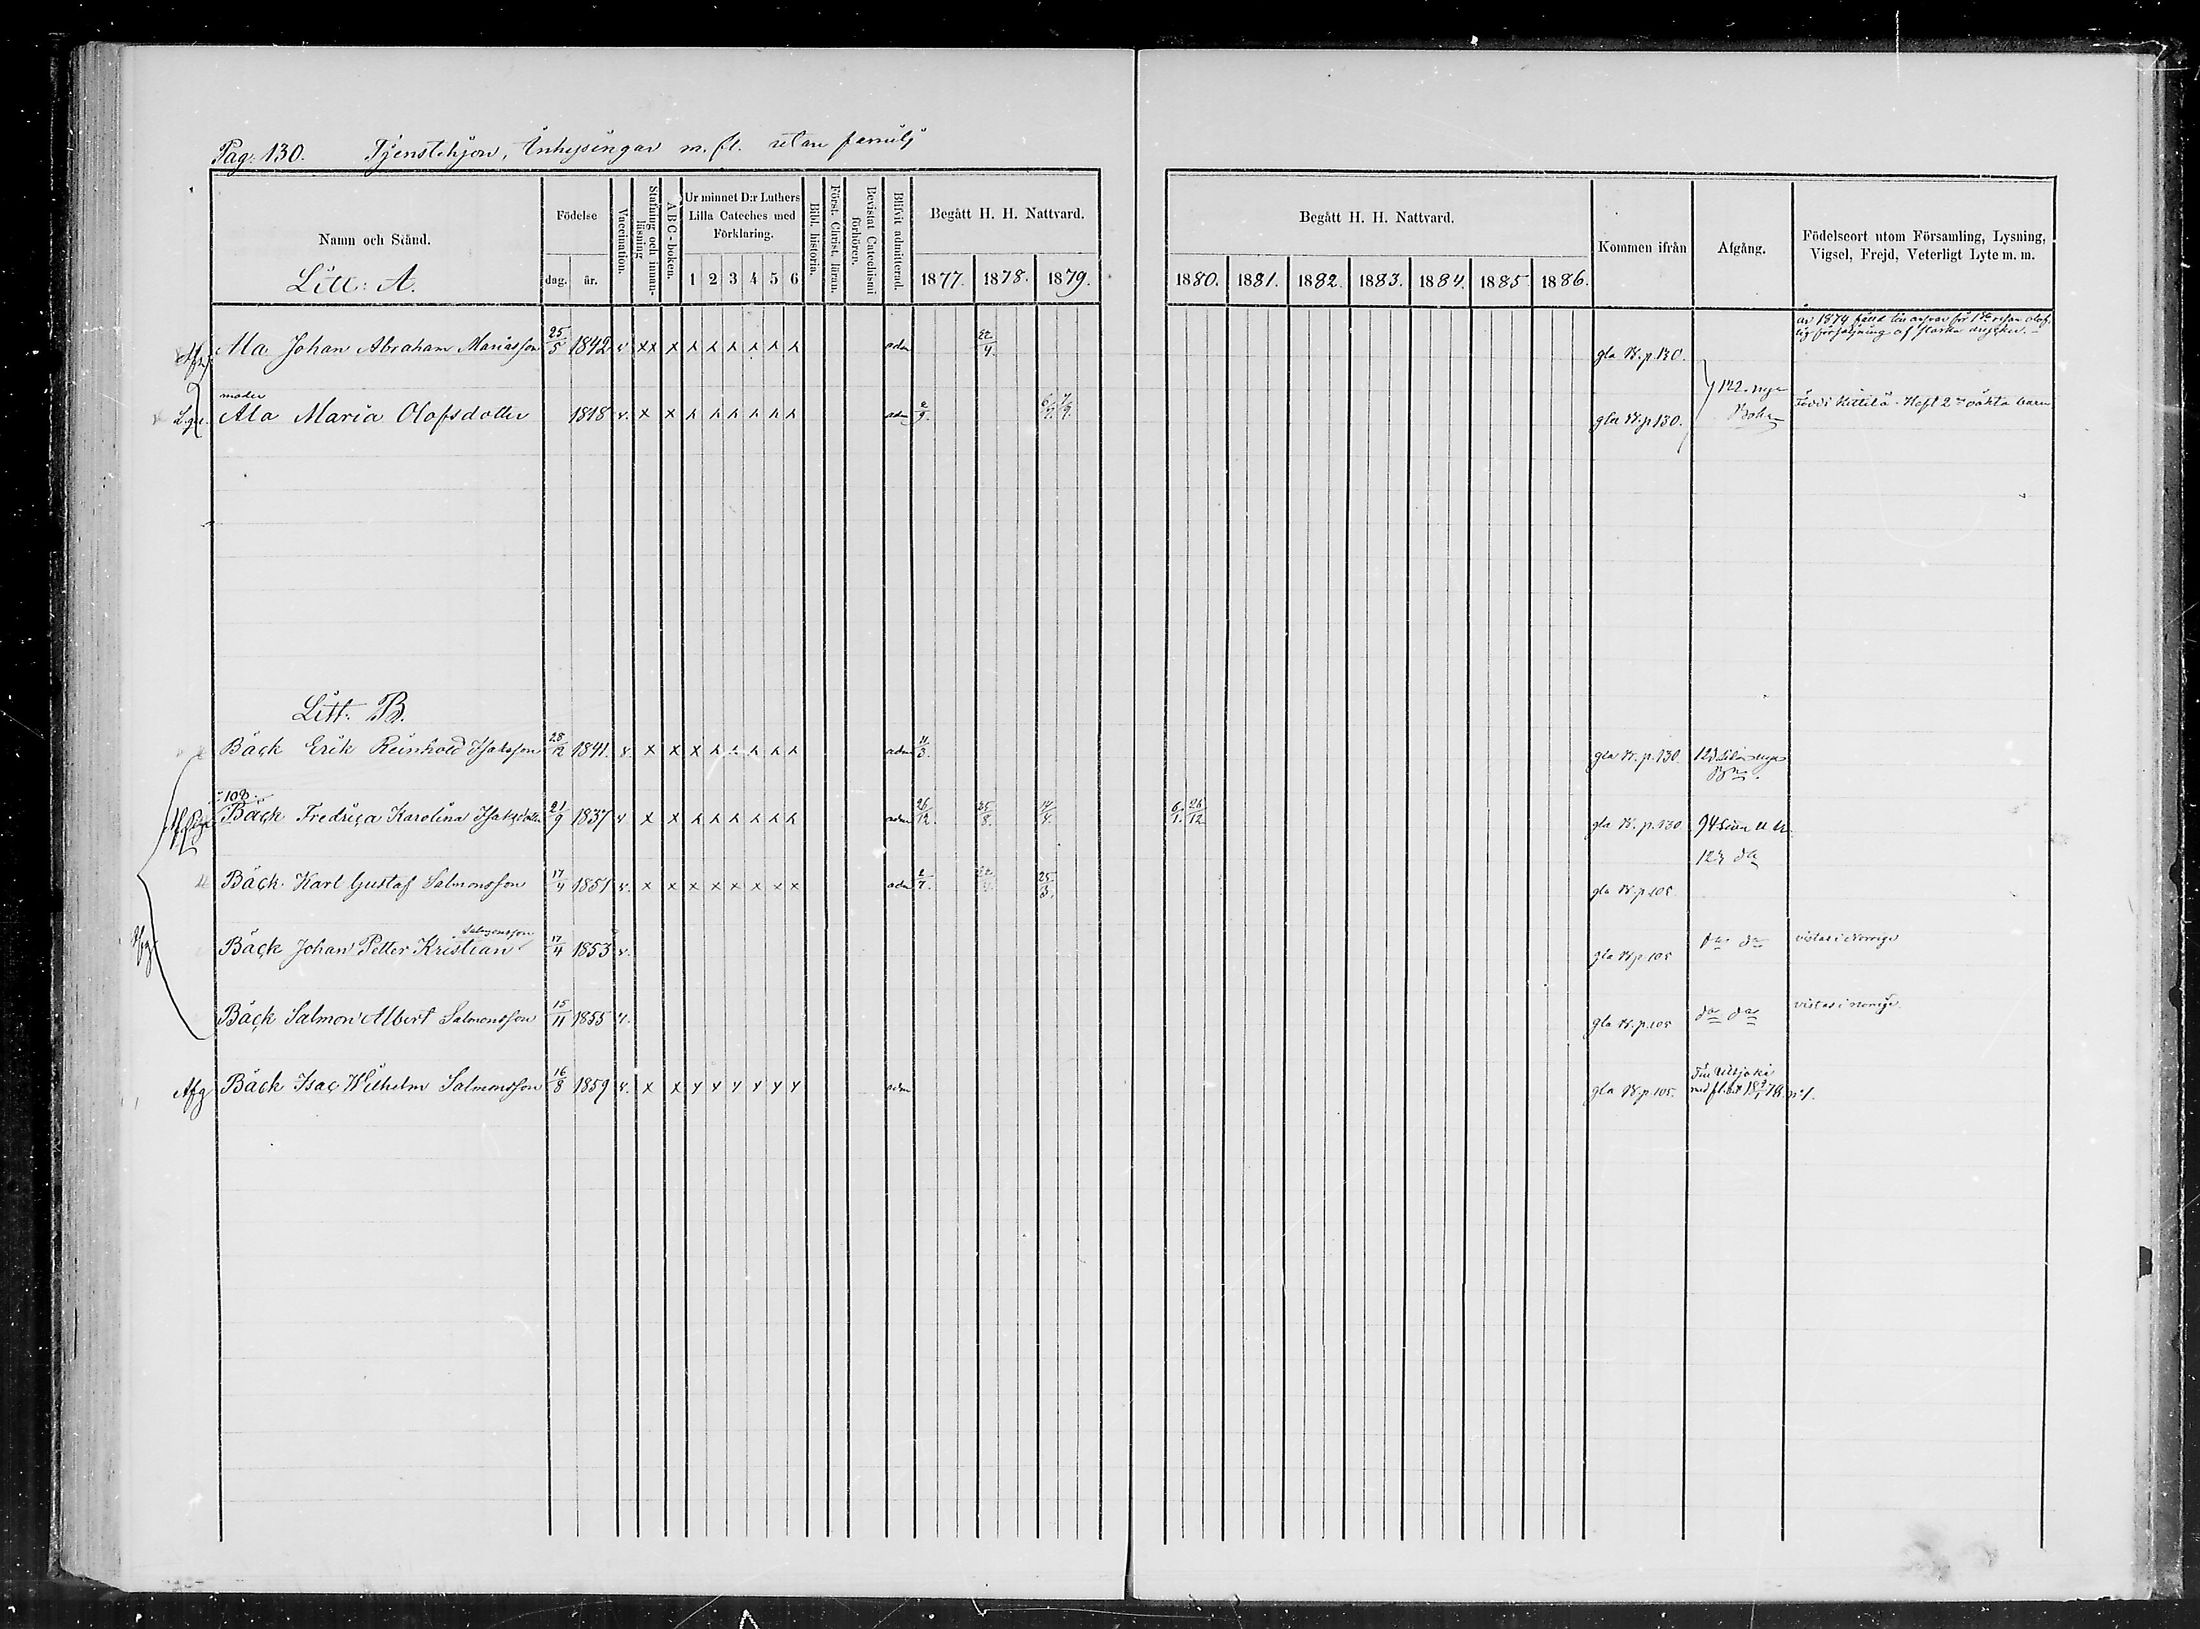 Pag: 130. Tjenstehjon, Inhysingar m. fl. utan familj
Namn och Stånd.
Litt: A.
Födelse
dag. år.
Vaccination.
Stafning och innanläsning
ABC-boken.
Ur minnet D:r Luthers Lilla Cateches med Förklaring.
1 2 3 4 5 6
Bibl. historia.
Först. Christ. läran.
Bevistat Catechismi förhören.
Blifvit admitterad.
Begått H. H. Nattvard.
1877. 1878. 1879.
Begått H. H. Nattvard.
1880. 1881. 1882. 1883. 1884. 1885. 1886.
Kommen ifrån
Afgång.
Födelseort utom Församling, Lysning, Vigsel, Frejd, Veterligt Lyte m. m.
Ala Johan Abraham Mariasson 25/5 1842 v. xx x adm 22/4. gla K. p. 130.
år 1874 fälld till ansvar för 1sta resan olof-
lig försäljning af starka drycker.
moder
Ala Maria Olofsdotter 1818 v. x x adm 2/9. gla K. p 130. 122. nya Född i Kittilä. Haft 2ne oäkta barn
Litt. B.
Bäck Erik Reinhold Isaksson 28/12 1841. v. x x x adm 11/3. gla K. p. 130. 123
108.
Bäck Fredrica Karolina Isaksdotter 21/9 1837 v x x adm 26/12. 25/8. 14/4. 6/1. 26/12 gla K. p. 130 94
123 do
Bäck Karl Gustaf Salmonsson 17/4 1851 v. x x x x x x x x adm 2/7. 25/3. gla K. p 105
Salmonsson
Bäck Johan Petter Kristian 17/4 1853 v. gla K p. 105 do do vistas i Norrige
Bäck Salmon Albert Salmonsson 15/11 1855 v. gla K. p. 105 do do vistas i Norrige.
Afg Bäck Isac Wilhelm Salmonsson 16/8 1859 v. x x adm gla K. p. 105. Till Utsjoki
med fl. bet 18 9/1 78. no 1.